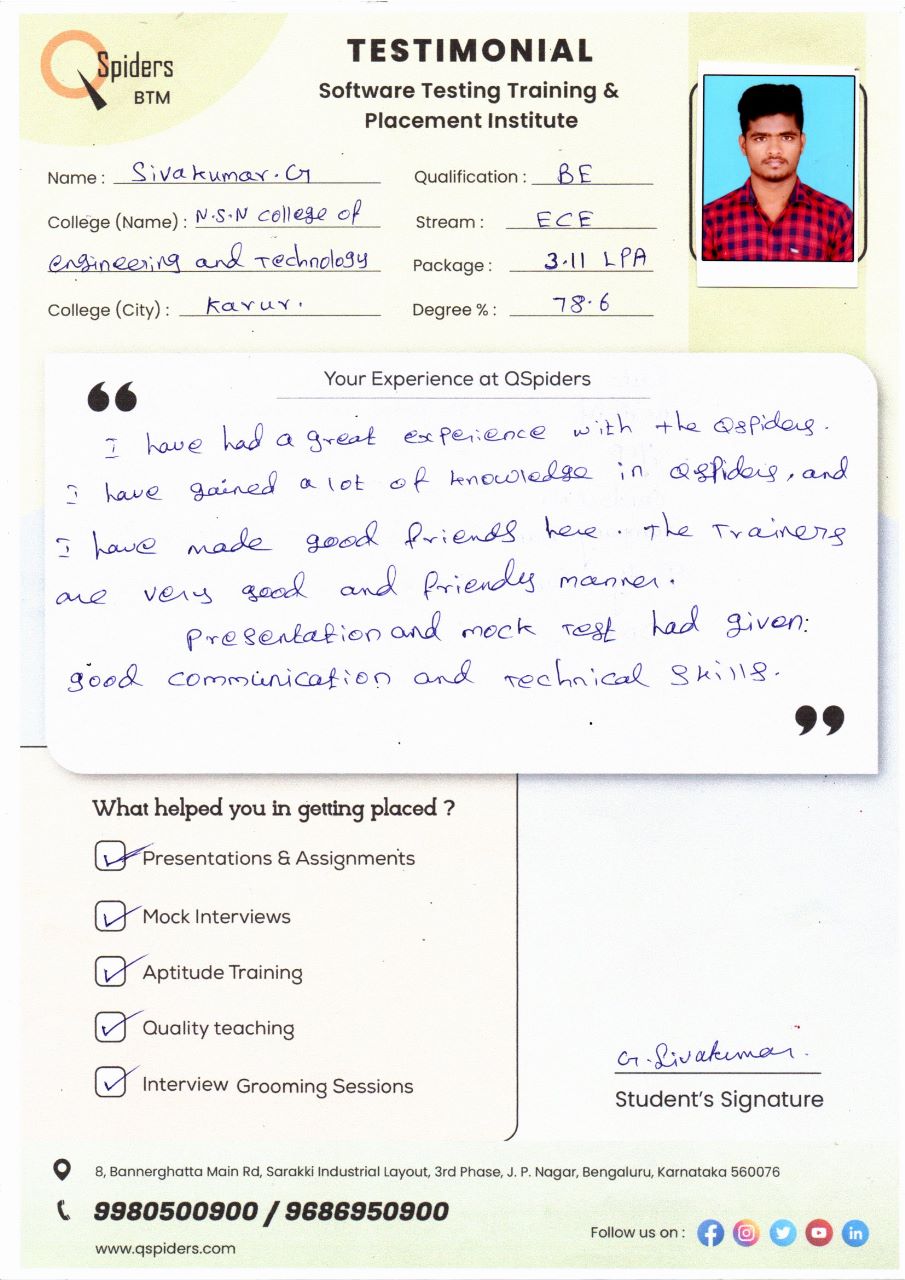 QSpiders
BTM
TESTIMONIAL
Software Testing Training &
Placement Institute
Name : Sivakumar.G
Qualification : BE
College (Name) : N.S.N college of
engineering and Technology
Stream : ECE
Package : 3.11 LPA
College (City) : Karur.
Degree % : 78.6
Your Experience at QSpiders
“
I have had a great experience with the Qspiders.
I have gained a lot of knowledge in Qspiders, and
I have made good friends here. The Trainers
are very good and friendly manner.
Presentation and mock Test had given:
good communication and Technical skills.
”
What helped you in getting placed ?
Presentations & Assignments
Mock Interviews
Aptitude Training
Quality teaching
Interview Grooming Sessions
G.Sivakumar.
Student's Signature
8, Bannerghatta Main Rd, Sarakki Industrial Layout, 3rd Phase, J. P. Nagar, Bengaluru, Karnataka 560076
9980500900 / 9686950900
www.qspiders.com
Follow us on :